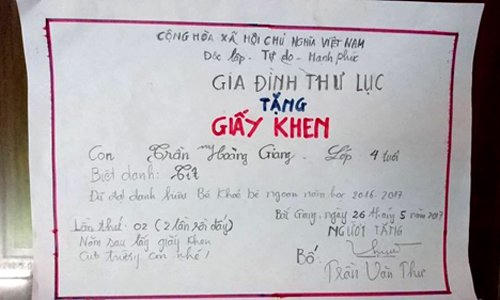 CỘNG HÒA XÃ HỘI CHỦ NGHĨA VIỆT NAM
Độc lập - Tự do - Hạnh phúc
GIA ĐÌNH THƯ LỤC
TẶNG
GIẤY KHEN
Con Trần Hoàng Giang. Lớp 4 tuổi
Biệt danh: Tít
Đã đạt danh hiệu Bé khoẻ bé ngoan năm học 2016-2017
Bắc Giang, ngày 26 tháng 5 năm 2017
Lần thứ: 02 (2 lần rồi đấy)
NGƯỜI TẶNG
Năm sau lấy giấy khen
Bố
của trường con nhé!
Trần Văn Thư